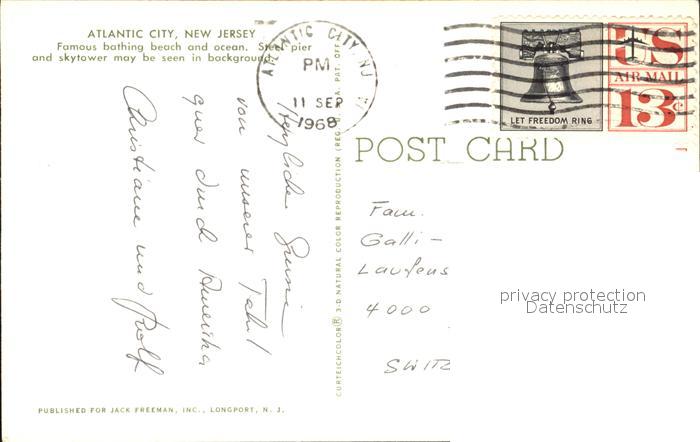 ATLANTIC CITY, NEW JERSEY
Famous bathing beach and ocean. Steel pier
and skytower may be seen in background
ATLANTIC CITY, NJ
PM
11 SEP
1968
LET FREEDOM RING
US
AIR MAIL
13c
POST CARD
Herzliche Grüsse
von unserer Fahrt
quer durch Amerika
Christiane und Rolf
CURTEICHCOLOR® 3-D NATURAL COLOR REPRODUCTION (REG. U.S.A. PAT. OFF.
Fam.
Galli-
Laufens
4000
SWITZ
privacy protection
Datenschutz
PUBLISHED FOR JACK FREEMAN, INC., LONGPORT, N. J.